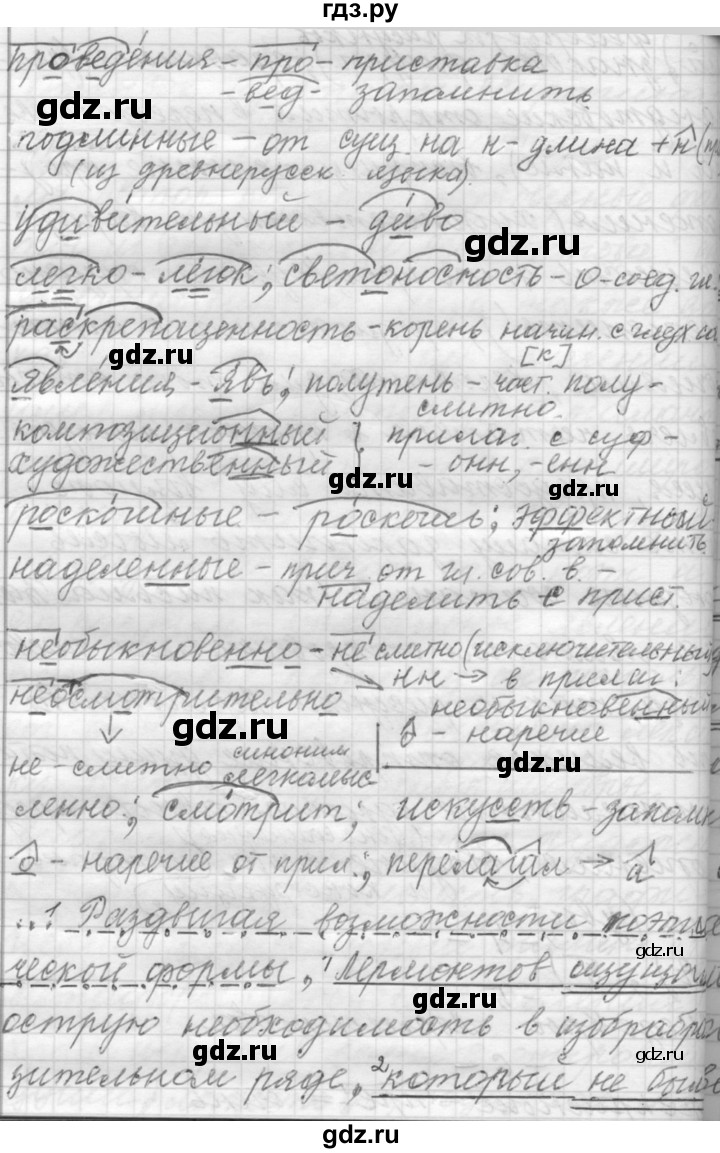 гдз.ру
проведения - про - приставка
- вед - запомнить
подлинные - от сущ. на н - длина + н
(из древнерусск. языка).
удивительный - диво
легко - лёгок; светоносность - о - соед. гл.
раскрепощенность - корень начин. с глух со
[к]
явления - явь; полутень - част. полу -
слитно.
композиционный } прилаг. с суф -
художественный - онн, - енн
роскошные - роскошь; эффектный
запомнить
наделенные - прич от гл. сов. в. -
наделить с прист.
необыкновенно - не слитно (исключительный
нн → в прилаг:
неосмотрительно
необыкновенный
о - наречие
не - слитно синоним
легкомыс
ленно; смотрит; искусств - запомн
о - наречие от прил.; перелагал → а
...1 Раздвигая возможности поэти
ческой формы, 1 Лермонтов ощущал
острую необходимость в изобрабра
зительном ряде, 2 который не был
gdz.ru
gdz.ru
gdz.ru
gdz.ru
gdz.ru
gdz.ru
gdz.ru
gdz.ru
gdz.ru
gdz.ru
gdz.ru
gdz.ru
gdz.ru